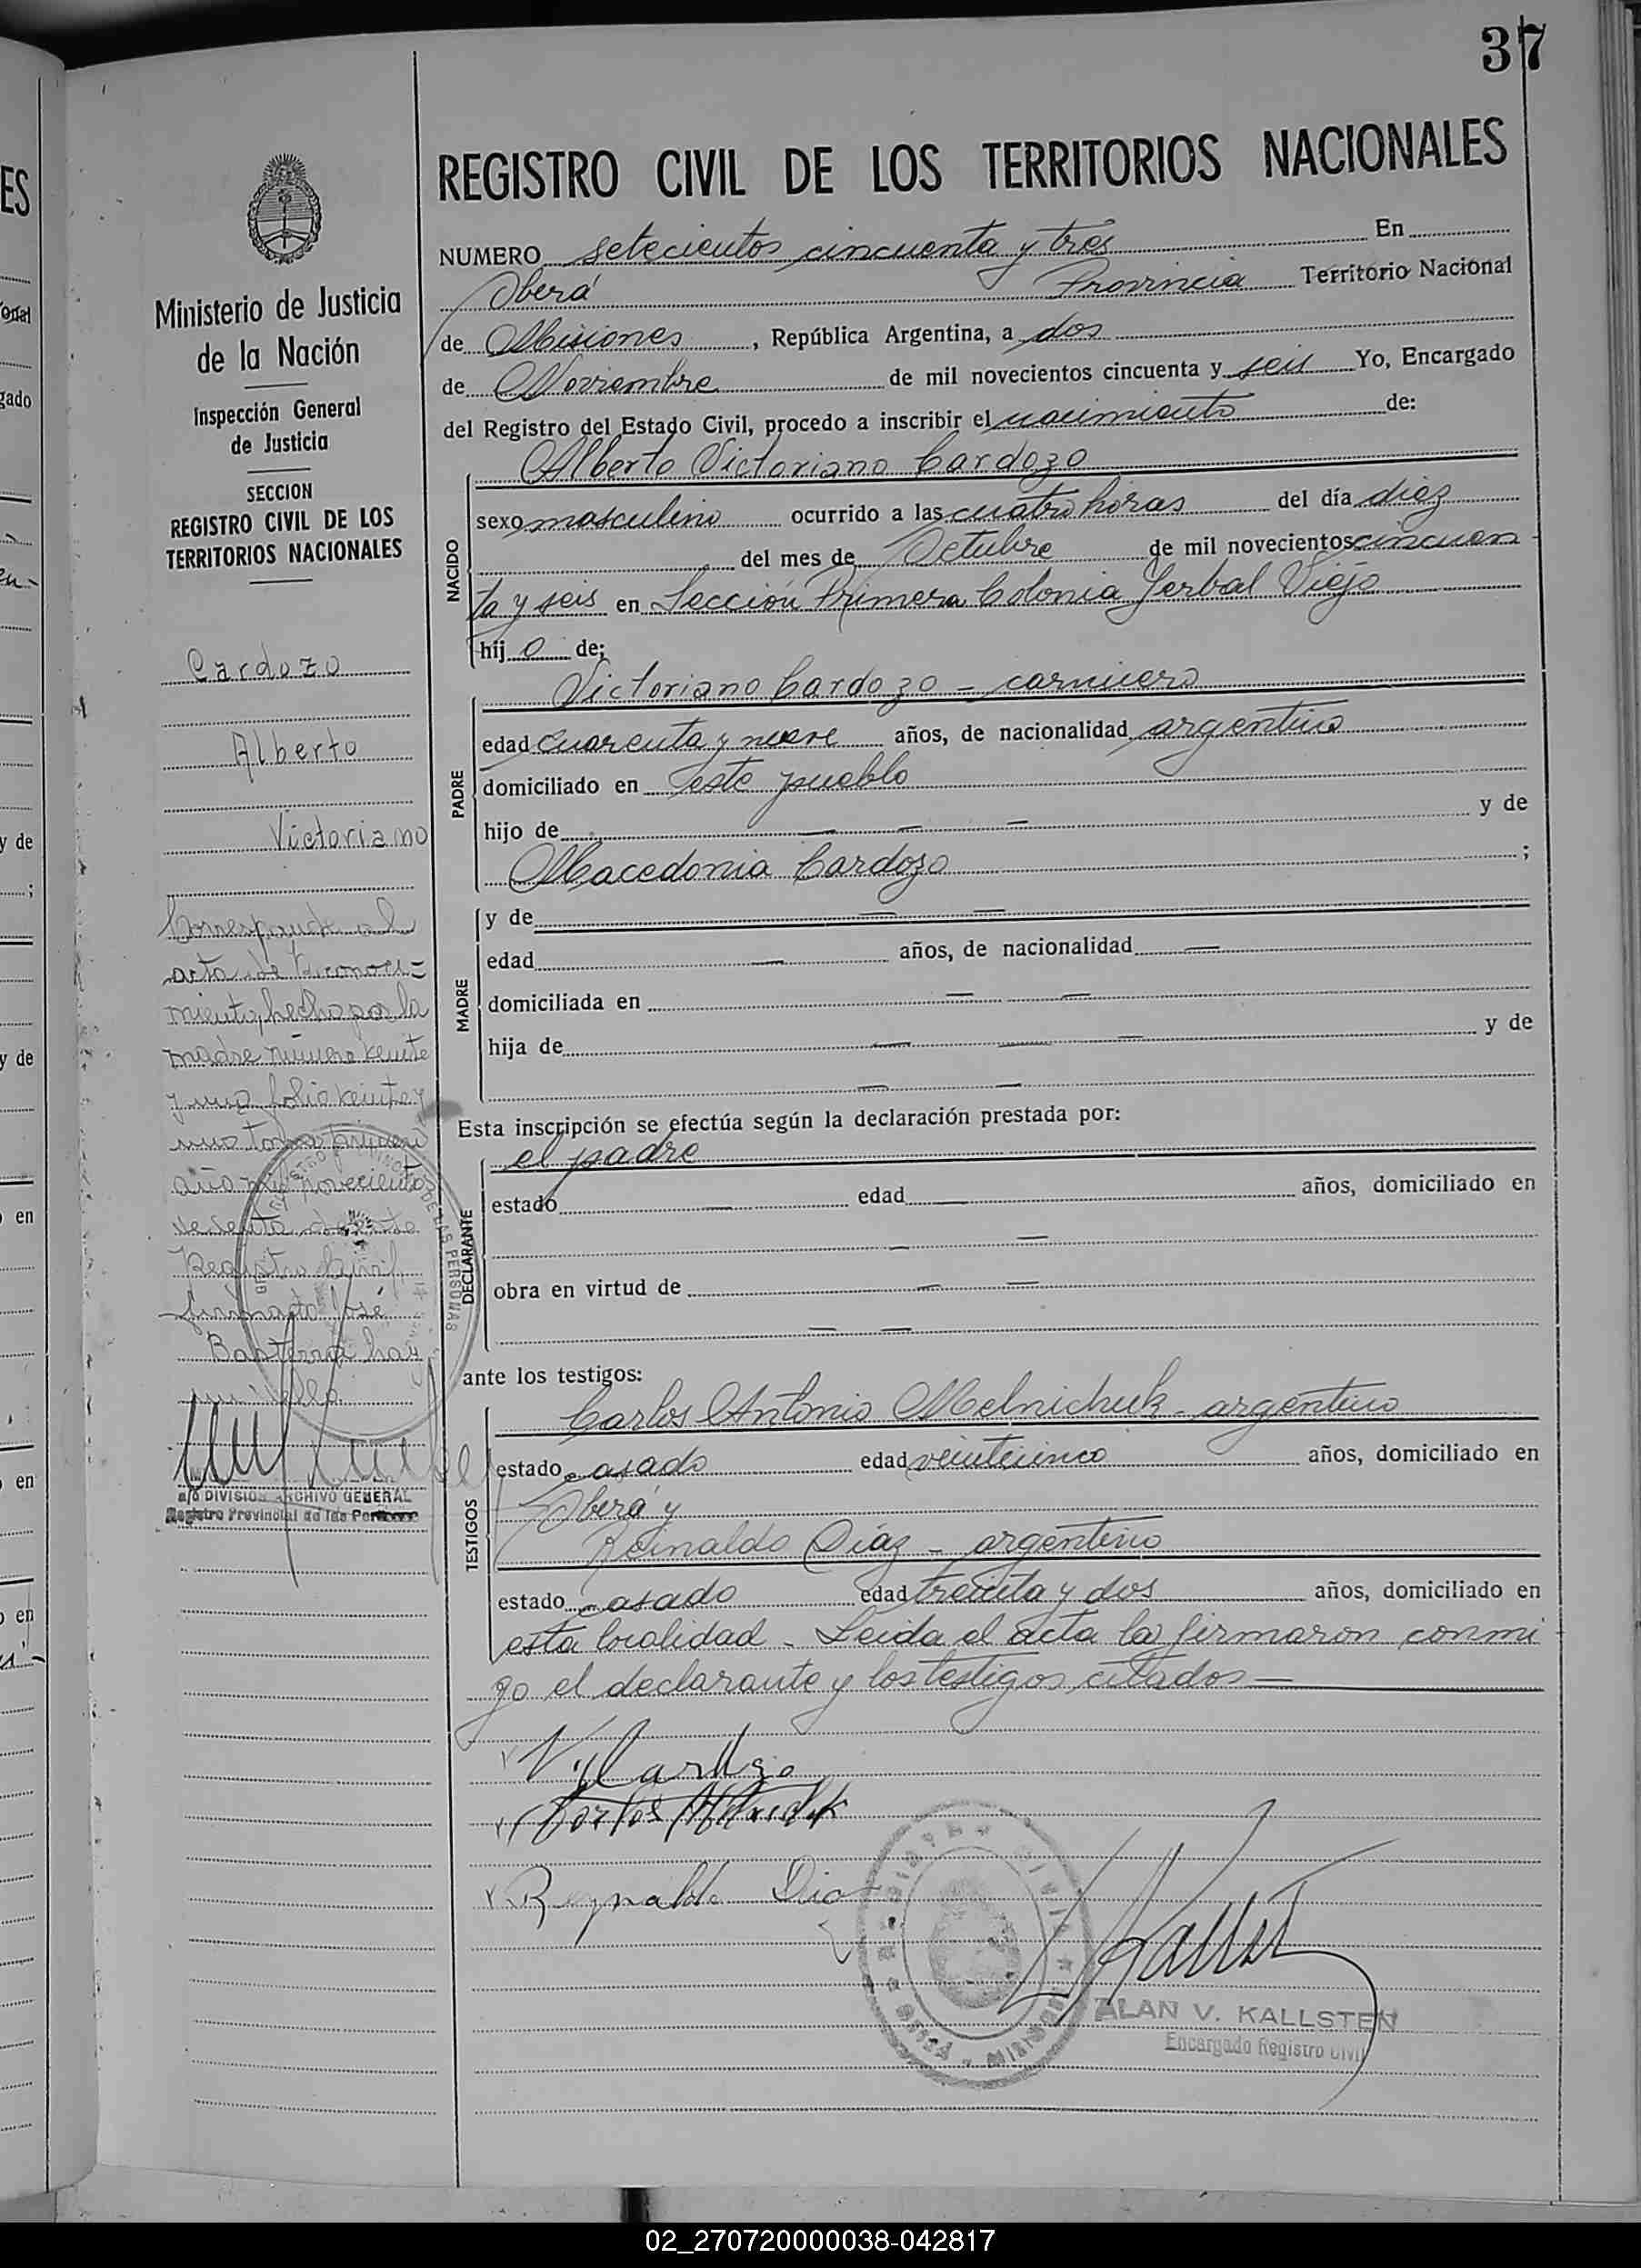 37
REGISTRO CIVIL DE LOS TERRITORIOS NACIONALES
Ministerio de Justicia
de la Nación
Inspección General
de Justicia
SECCION
REGISTRO CIVIL DE LOS
TERRITORIOS NACIONALES
Cardozo
Alberto
Victoriano
Corresponde al
acta de reconoci=
miento, hecho por la
madre número veinte
y uno folio veinte y
uno tomo primero
año mil novecientos
sesenta
Registro Civil
José
a/c DIVISION ARCHIVO GENERAL
Registro Provincial de las Personas
NUMERO setecientos cincuenta y tres En
Oberá Provincia Territorio Nacional
de Misiones, República Argentina, a dos
de Noviembre de mil novecientos cincuenta y seis Yo, Encargado
del Registro del Estado Civil, procedo a inscribir el nacimiento de:
NACIDO
Alberto Victoriano Cardozo
sexo masculino ocurrido a las cuatro horas del día diez
del mes de Octubre de mil novecientos cincuen
ta y seis en Sección Primera Colonia Yerbal Viejo
hijo de;
PADRE
Victoriano Cardozo - carnicero
edad cuarenta y nueve años, de nacionalidad argentino
domiciliado en este pueblo
hijo de — — — y de
Macedonia Cardozo ;
MADRE
y de — —
edad — años, de nacionalidad —
domiciliada en — —
hija de — — — y de
— —
Esta inscripción se efectúa según la declaración prestada por:
DECLARANTE
el padre
estado — edad — años, domiciliado en
— —
obra en virtud de — —
— —
ante los testigos:
TESTIGOS
Carlos Antonio Melnichuk - argentino
estado casado edad veinticinco años, domiciliado en
Oberá y
Reinaldo Díaz - argentino
estado casado edad treinta y dos años, domiciliado en
esta localidad - Leida el acta la firmaron conmi
go el declarante y los testigos citados —
V Cardozo
Carlos Melnichuk
Reynaldo Diaz
ALAN V. KALLSTEN
Encargado Registro Civil
02_270720000038-042817